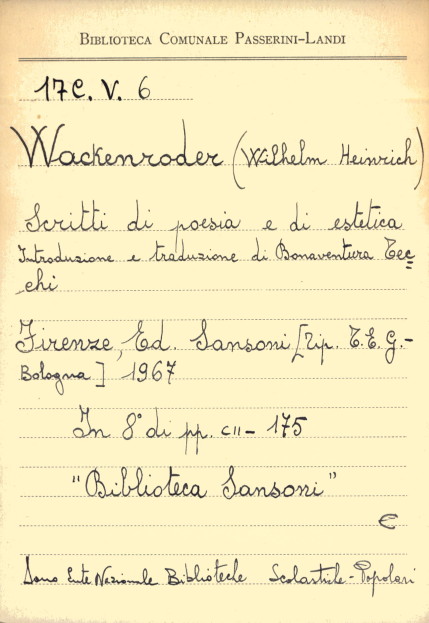 BIBLIOTECA COMUNALE PASSERINI-LANDI
17C. V. 6
Wackenroder (Wilhelm Heinrich)
Scritti di poesia e di estetica
Introduzione e traduzione di Bonaventura Tec=
chi
Firenze, Ed. Sansoni [Tip. T.E.G.-
Bologna] 1967
In 8° di pp. CII - 175
"Biblioteca Sansoni"
€
Dono Ente Nazionale Biblioteche Scolastiche-Popolari